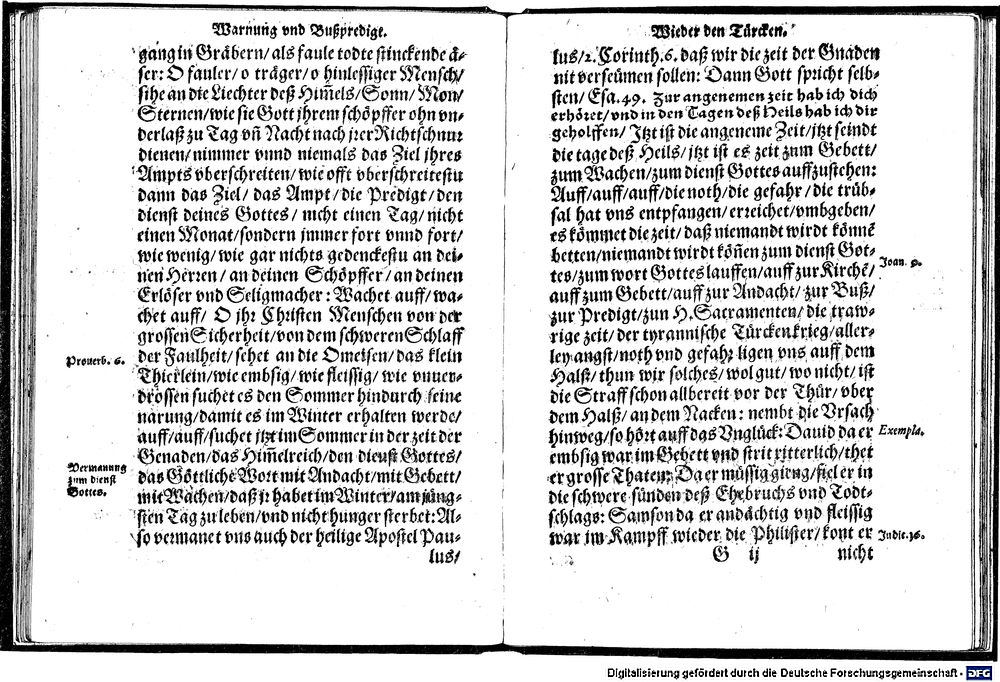 Warnung vnd Bußpredigt.
gang in Gräbern/ als faule todte stinckende ä-
ser: O fauler/ o träger/ o hinlessiger Mensch/
sihe an die Liechter deß Him̃els/ Sonn/ Mon/
Sternen/ wie sie Gott jhrem schöpffer ohn vn-
derlaß zu Tag vñ Nacht nach jrer Richtschnur
dienen/ nimmer vnnd niemals das Ziel jhres
Ampts vberschreiten/ wie offt vberschreitestu
dann das Ziel/ das Ampt/ die Predigt/ den
dienst deines Gottes/ nicht einen Tag/ nicht
einen Monat/ sondern jmmer fort vnnd fort/
wie wenig/ wie gar nichts gedenckestu an dei-
nen Herren/ an deinen Schöpffer/ an deinen
Erlöser vnd Seligmacher: Wachet auff/ wa-
chet auff/ O jhr Christen Menschen von der
grossen Sicherheit/ von dem schweren Schlaff
Prouerb. 6.
der Faulheit/ sehet an die Omeisen/ das klein
Thierlein/ wie embsig/ wie fleissig/ wie vnuer-
drossen suchet es den Sommer hindurch seine
narung/ damit es im Winter erhalten werde/
auff/ auff/ suchet jtzt im Sommer in der zeit der
Genaden/ das Him̃elreich/ den dienst Gottes/
Vermanung
zum dienst
Gottes.
das Göttliche Wort mit Andacht/ mit Gebett/
mit Wachen/ daß jr habet im Winter/ am jüng-
sten Tag zu leben/ vnd nicht hunger sterbet: Al-
so vermanet vns auch der heilige Apostel Pau-
lus/
Wieder den Türcken.
lus/ 2. Corinth. 6. daß wir die zeit der Gnaden
nit verseümen sollen: Dann Gott spricht selb-
sten/ Esa. 49. Zur angenemen zeit hab ich dich
erhöret/ vnd in den Tagen deß Heils hab ich dir
geholffen/ Jtzt ist die angeneme Zeit/ jtzt seindt
die tage deß Heils/ jtzt ist es zeit zum Gebett/
zum Wachen/ zum dienst Gottes auffzustehen:
Auff/ auff/ auff/ die noth/ die gefahr/ die trüb-
sal hat vns entpfangen/ erreichet/ vmbgeben/
es kömmet die zeit/ daß niemandt wirdt könnẽ
betten/ niemandt wirdt köñen zum dienst Got-
Joan. 9.
tes/ zum wort Gottes lauffen/ auff zur Kirchẽ/
auff zum Gebett/ auff zur Andacht/ zur Buß/
zur Predigt/ zun H. Sacramenten/ die traw-
rige zeit/ der tyrannische Türckenkrieg/ aller-
ley angst/ noth vnd gefahr ligen vns auff dem
Halß/ thun wir solches/ wol gut/ wo nicht/ ist
die Straff schon allbereit vor der Thür/ vber
dem Halß/ an dem Nacken: nembt die Vrsach
hinweg/ so hört auff das Vnglück: Dauid da er
Exempla.
embsig war im Gebett vnd strit ritterlich/ thet
er grosse Thaten: Da er müssig gieng/ fiel er in
die schwere sünden deß Ehebruchs vnd Todt-
schlags: Samson da er andächtig vnd fleissig
war im Kampff wieder die Philister/ kont er
Judic. 16.
G ij nicht
Digitalisierung gefördert durch die Deutsche Forschungsgemeinschaft - DFG